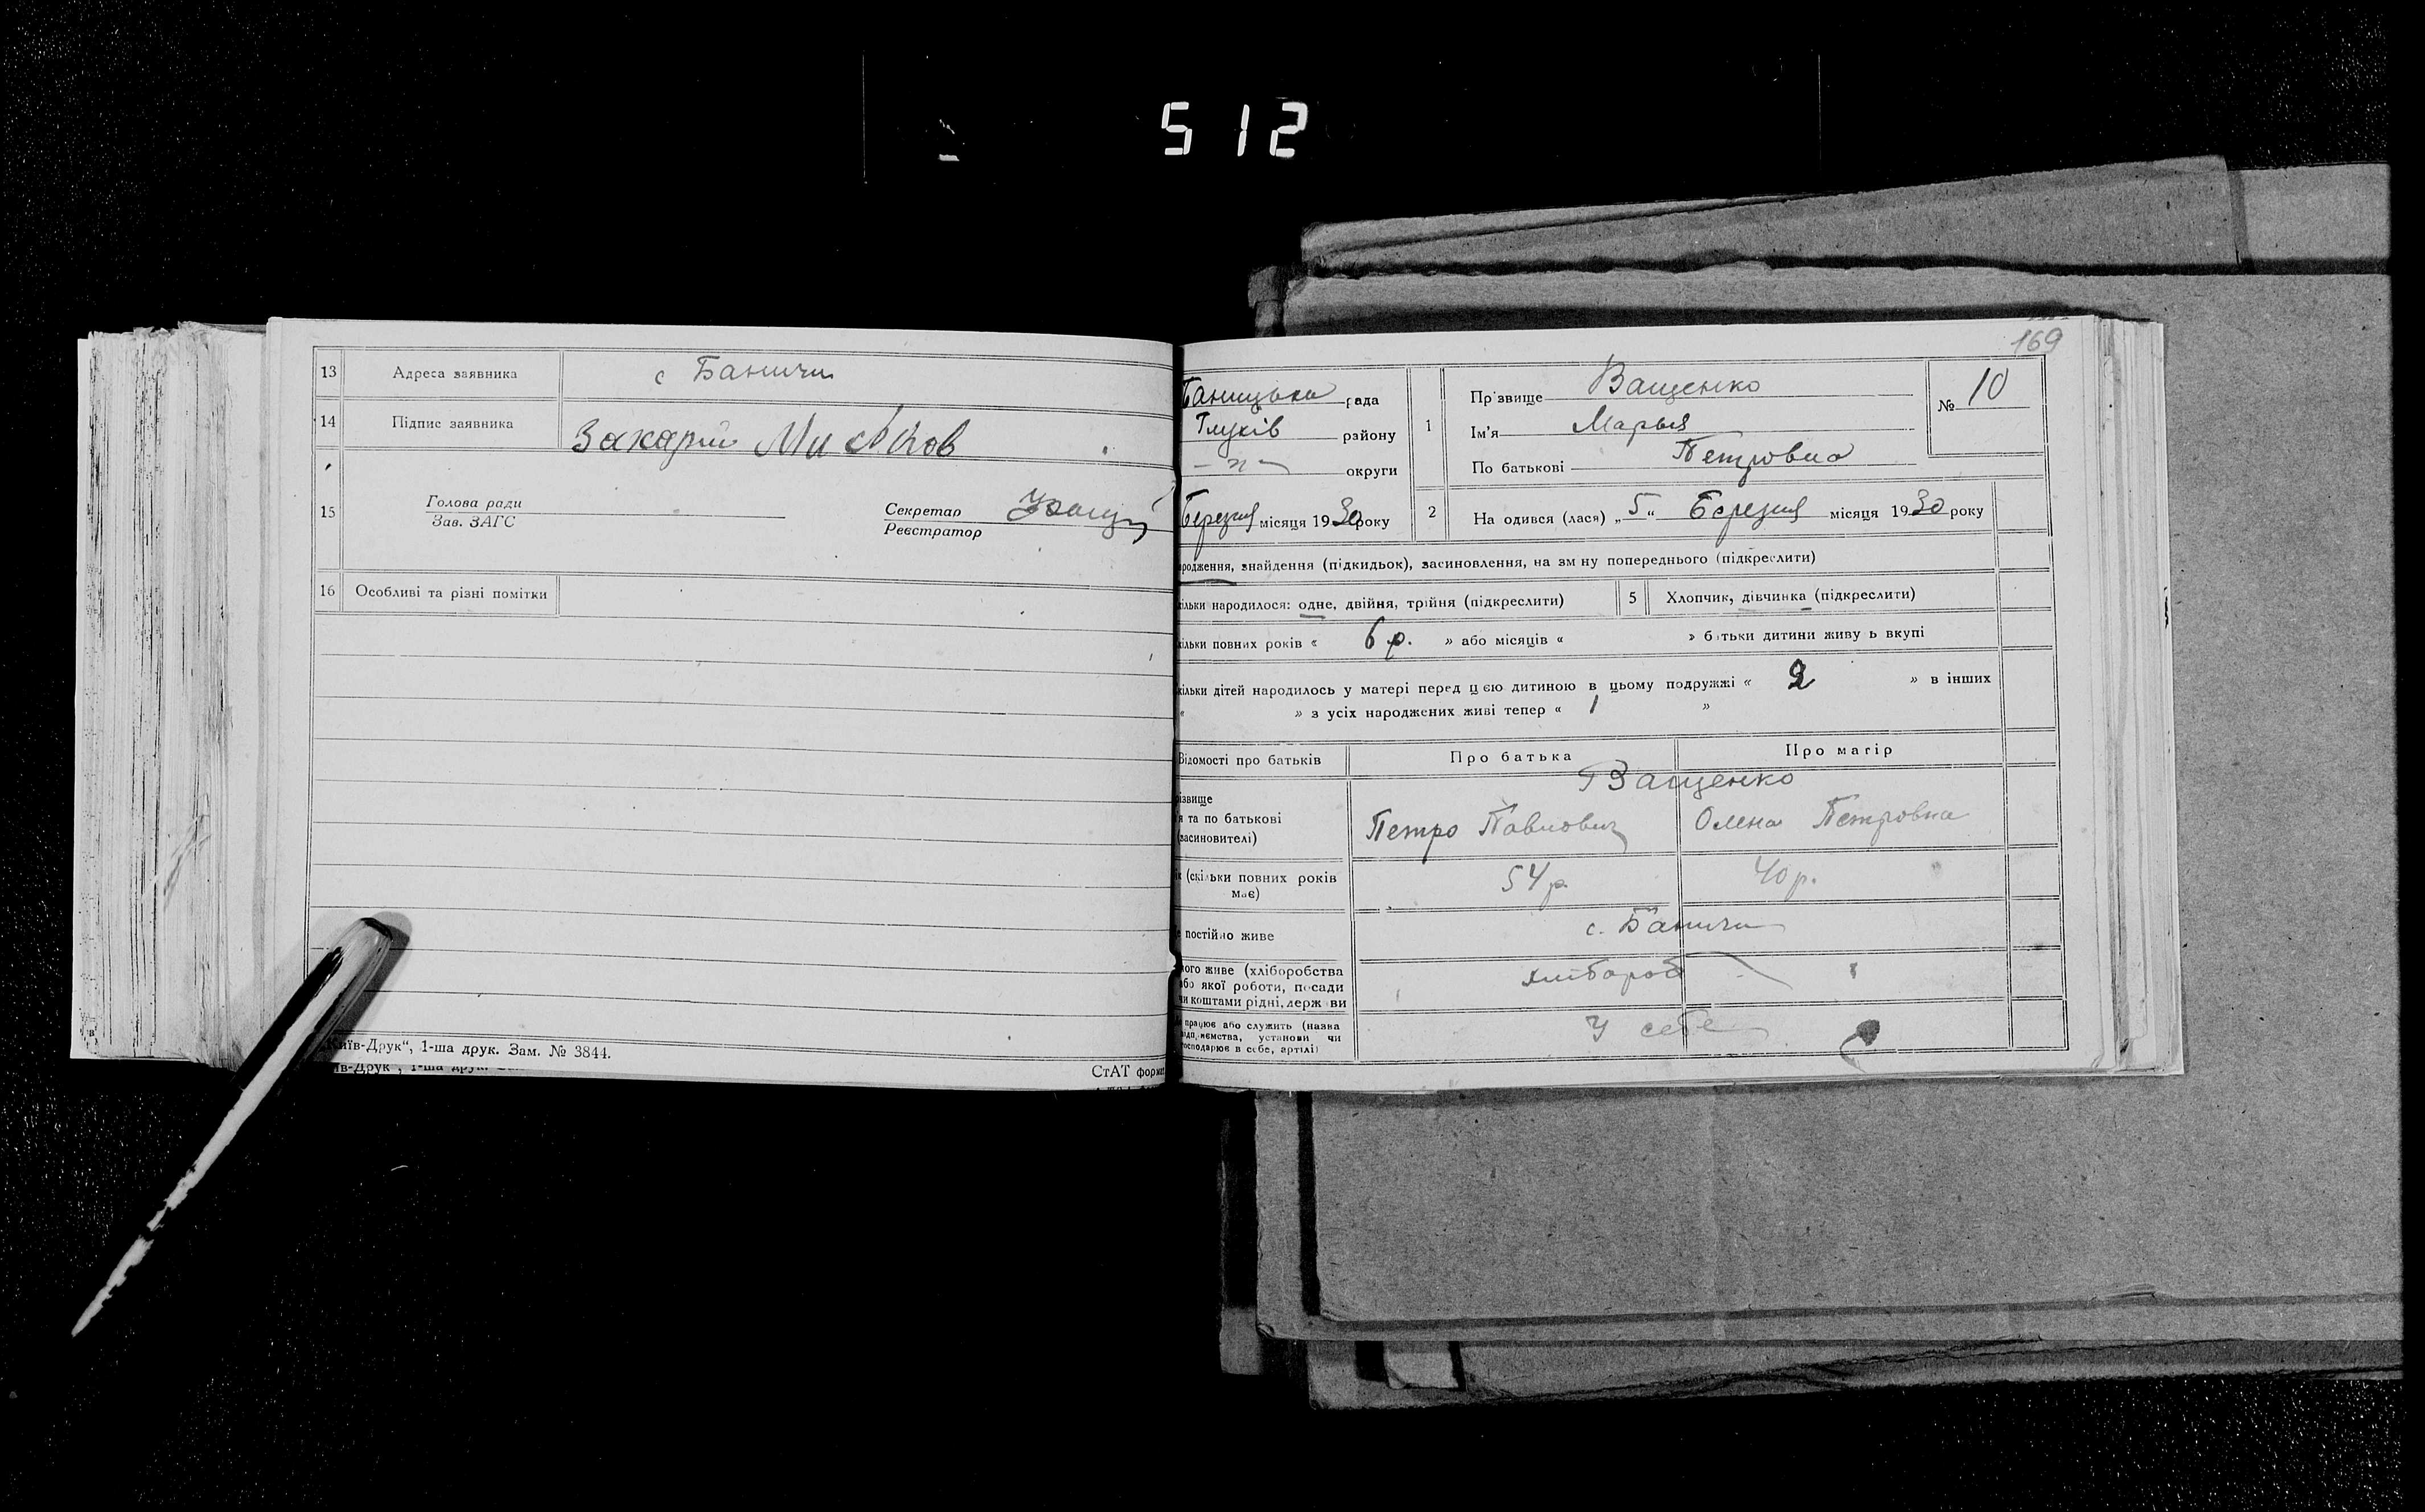 512
13 Адреса заявника с Баничи
14 Підпис заявника Захарій
15 Голова ради
Зав. ЗАГС
Секретар
Реєстратор
16 Особливі та різні помітки
„Київ-Друк“, 1-ша друк. Зам. № 3844.
СтАТ формат
169
Баницька рада
Глухів району
округи
1 Пр'звище Ващенко
Ім'я Марья
По батькові Петровна
№ 10
Березня місяця 1930 року
2 На одився (лася) „5“ Березня місяця 1930 року
родження, знайдення (підкидьок), засиновлення, на зм ну попереднього (підкреслити)
кільки народилося: одне, двійня, трійня (підкреслити) 5 Хлопчик, дівчинка (підкреслити)
кільки повних років « 6 р. » або місяців « » б тьки дитини живу ь вкупі
кільки дітей народилось у матері перед цією дитиною в цьому подружжі « 2 » в інших
« » з усіх народжених живі тепер « 1 »
Відомості про батьків Про батька Про матір
Ващенко
різвище
я та по батькові
(засиновителі)
Петро Павлович Олена Петровна
ік (скільки повних років
має)
54 р. 40 р.
е постійно живе с. Баничи
ного живе (хліборобства
або якої роботи, посади
чи коштами рідні, держ ви
хлібороб
працює або служить (назва
ідприємства, установи чи
господарює в себе, артілі)
У себе